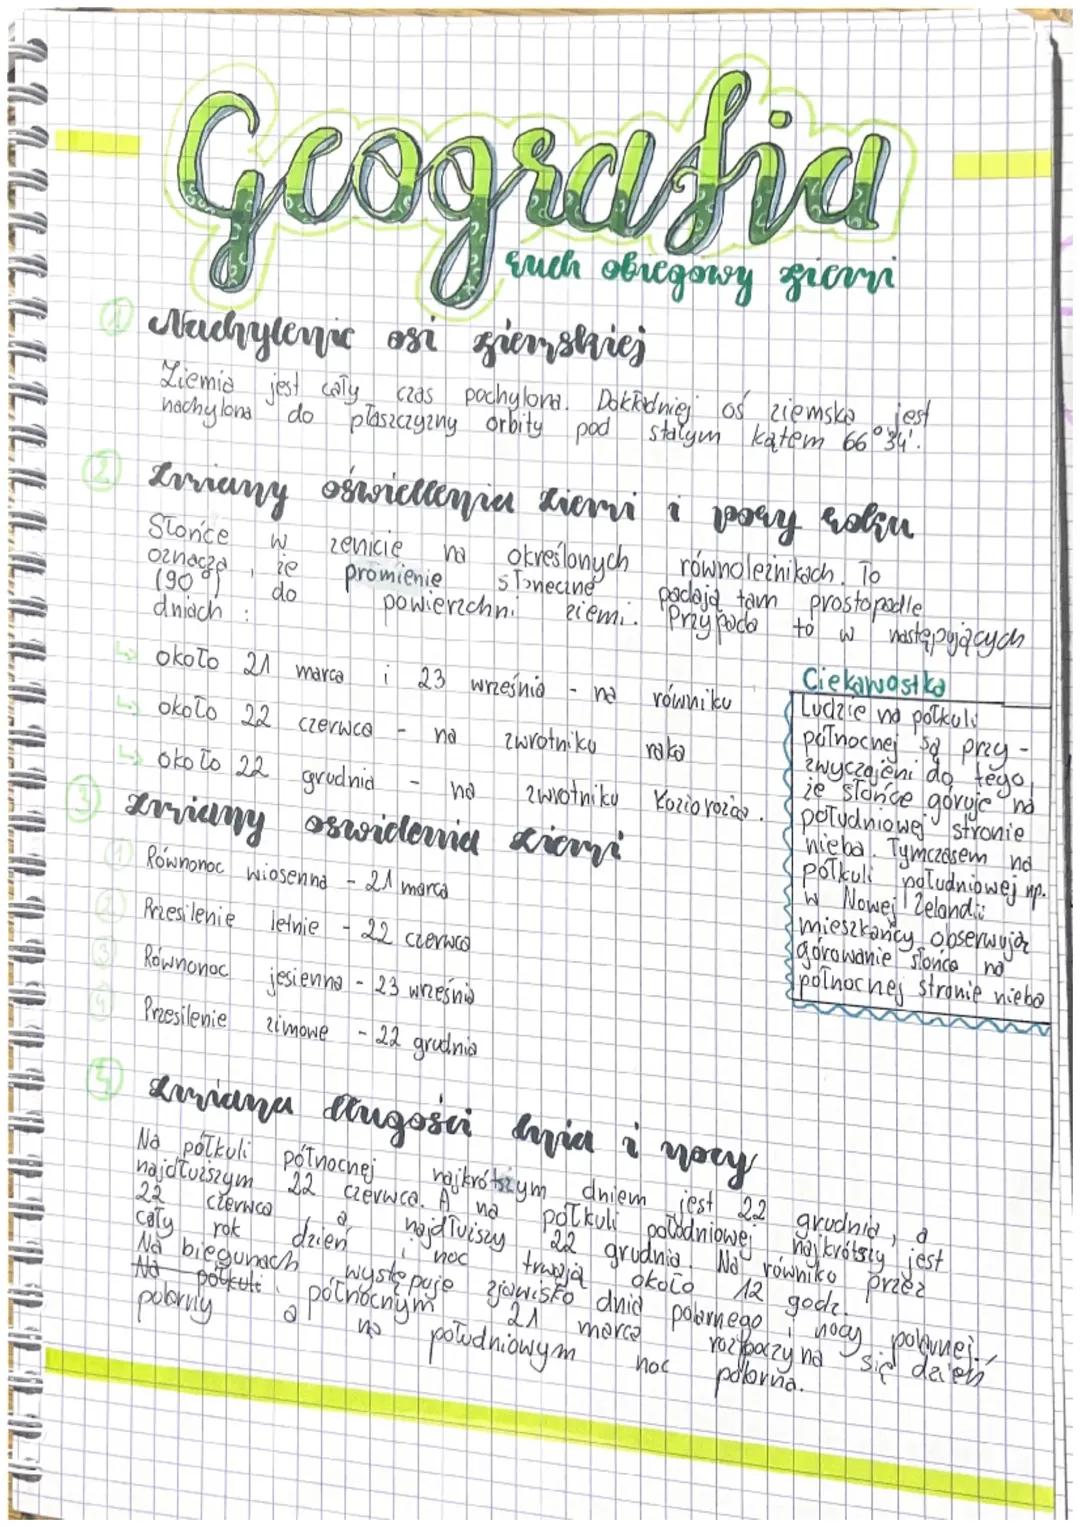 Geografia
ruch obiegowy ziemi
1 Nachylenie osi ziemskiej
Ziemia jest cały czas pochylona. Dokładniej oś ziemska jest
nachylona do płaszczyzny orbity pod stałym kątem 66°34'.
2 Zmiany oświetlenia Ziemi i pory roku
Słońce w zenicie na określonych równoleżnikach. To
oznacza, że promienie słoneczne padają tam prostopadle
(90°) do powierzchni ziemi. Przypada to w następujących
dniach:
↳ około 21 marca i 23 września - na równiku
↳ około 22 czerwca - na zwrotniku raka
↳ około 22 grudnia - na zwrotniku Koziorożca.
Ciekawostka
Ludzie na półkuli
północnej są przy-
zwyczajeni do tego,
że słońce góruje na
południowej stronie
nieba. Tymczasem na
półkuli południowej np.
w Nowej Zelandii
mieszkańcy obserwują
górowanie słońca na
północnej stronie nieba
3 Zmiany oswidenia Ziemi
1 Równonoc wiosenna - 21 marca
2 Przesilenie letnie - 22 czerwca
3 Równonoc jesienna - 23 września
4 Przesilenie zimowe - 22 grudnia
4 Zmiana długości dnia i nocy
Na półkuli północnej najkrótszym dniem jest 22 grudnia, a
najdłuższym 22 czerwca. A na półkuli południowej najkrótszy jest
22 czerwca a najdłuższy 22 grudnia. Na równiku przez
cały rok dzień i noc trwają około 12 godz.
Na biegunach występuje zjawisko dnia polarnego i nocy polarnej.
Na półkuli północnym 21 marca rozpoczyna się dzień
polarny a na południowym noc polarna.